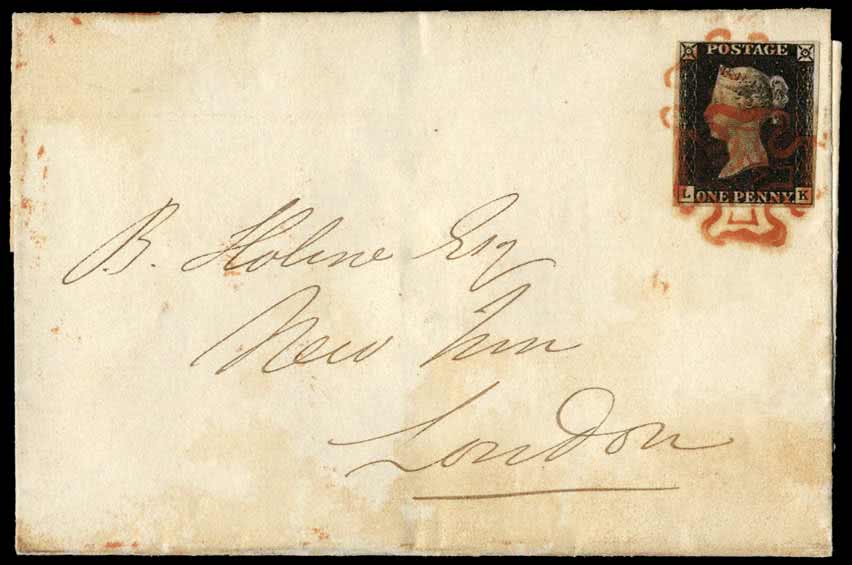 POSTAGE
L ONE PENNY K
B. Holme Esq
New Inn
London